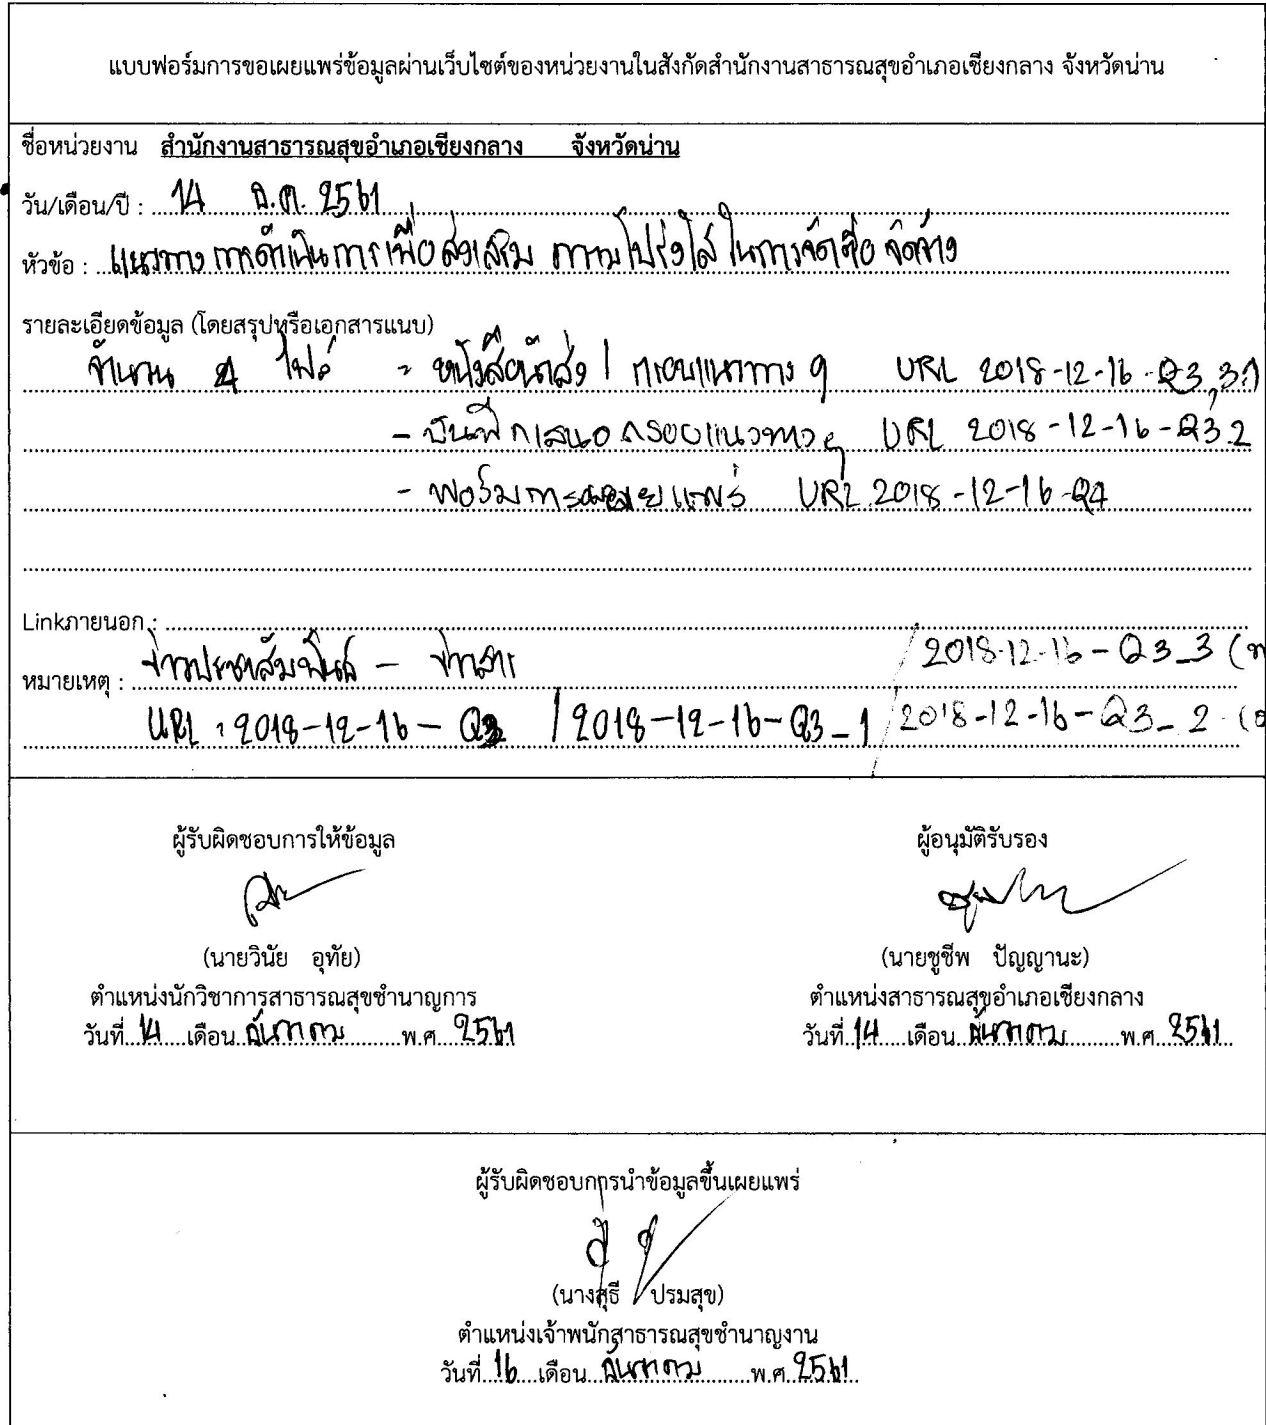 แบบฟอร์มการขอเผยแพร่ข้อมูลผ่านเว็บไซต์ของหน่วยงานในสังกัดสำนักงานสาธารณสุขอำเภอเชียงกลาง จังหวัดน่าน
ชื่อหน่วยงาน สำนักงานสาธารณสุขอำเภอเชียงกลาง จังหวัดน่าน
วัน/เดือน/ปี : 14 ธ.ค. 2561
หัวข้อ : แนวทาง การดำเนินการเพื่อส่งเสริม ความโปร่งใส ในการจัดซื้อ จัดจ้าง
รายละเอียดข้อมูล (โดยสรุปหรือเอกสารแนบ)
จำนวน 4 ไฟล์ - หนังสือนำส่ง / กรอบแนวทาง ๆ URL 2018-12-16-Q3,
- บันทึกเสนอ กรอบแนวทาง URL 2018-12-16-Q3.2
- ฟอร์มการเผยแพร่ URL 2018-12-16-Q4
Linkภายนอก :
หมายเหตุ : ข่าวประชาสัมพันธ์ - ข่าวสาร / 2018-12-16-Q3_3
URL : 2018-12-16-Q3 / 2018-12-16-Q3_1 / 2018-12-16-Q3_2
ผู้รับผิดชอบการให้ข้อมูล ผู้อนุมัติรับรอง
(นายวินัย อุทัย) (นายชูชีพ ปัญญานะ)
ตำแหน่งนักวิชาการสาธารณสุขชำนาญการ ตำแหน่งสาธารณสุขอำเภอเชียงกลาง
วันที่ 14 เดือน ธันวาคม พ.ศ. 2561 วันที่ 14 เดือน ธันวาคม พ.ศ. 2561
ผู้รับผิดชอบการนำข้อมูลขึ้นเผยแพร่
(นางสุธี ปรมสุข)
ตำแหน่งเจ้าพนักสาธารณสุขชำนาญงาน
วันที่ 16 เดือน ธันวาคม พ.ศ. 2561